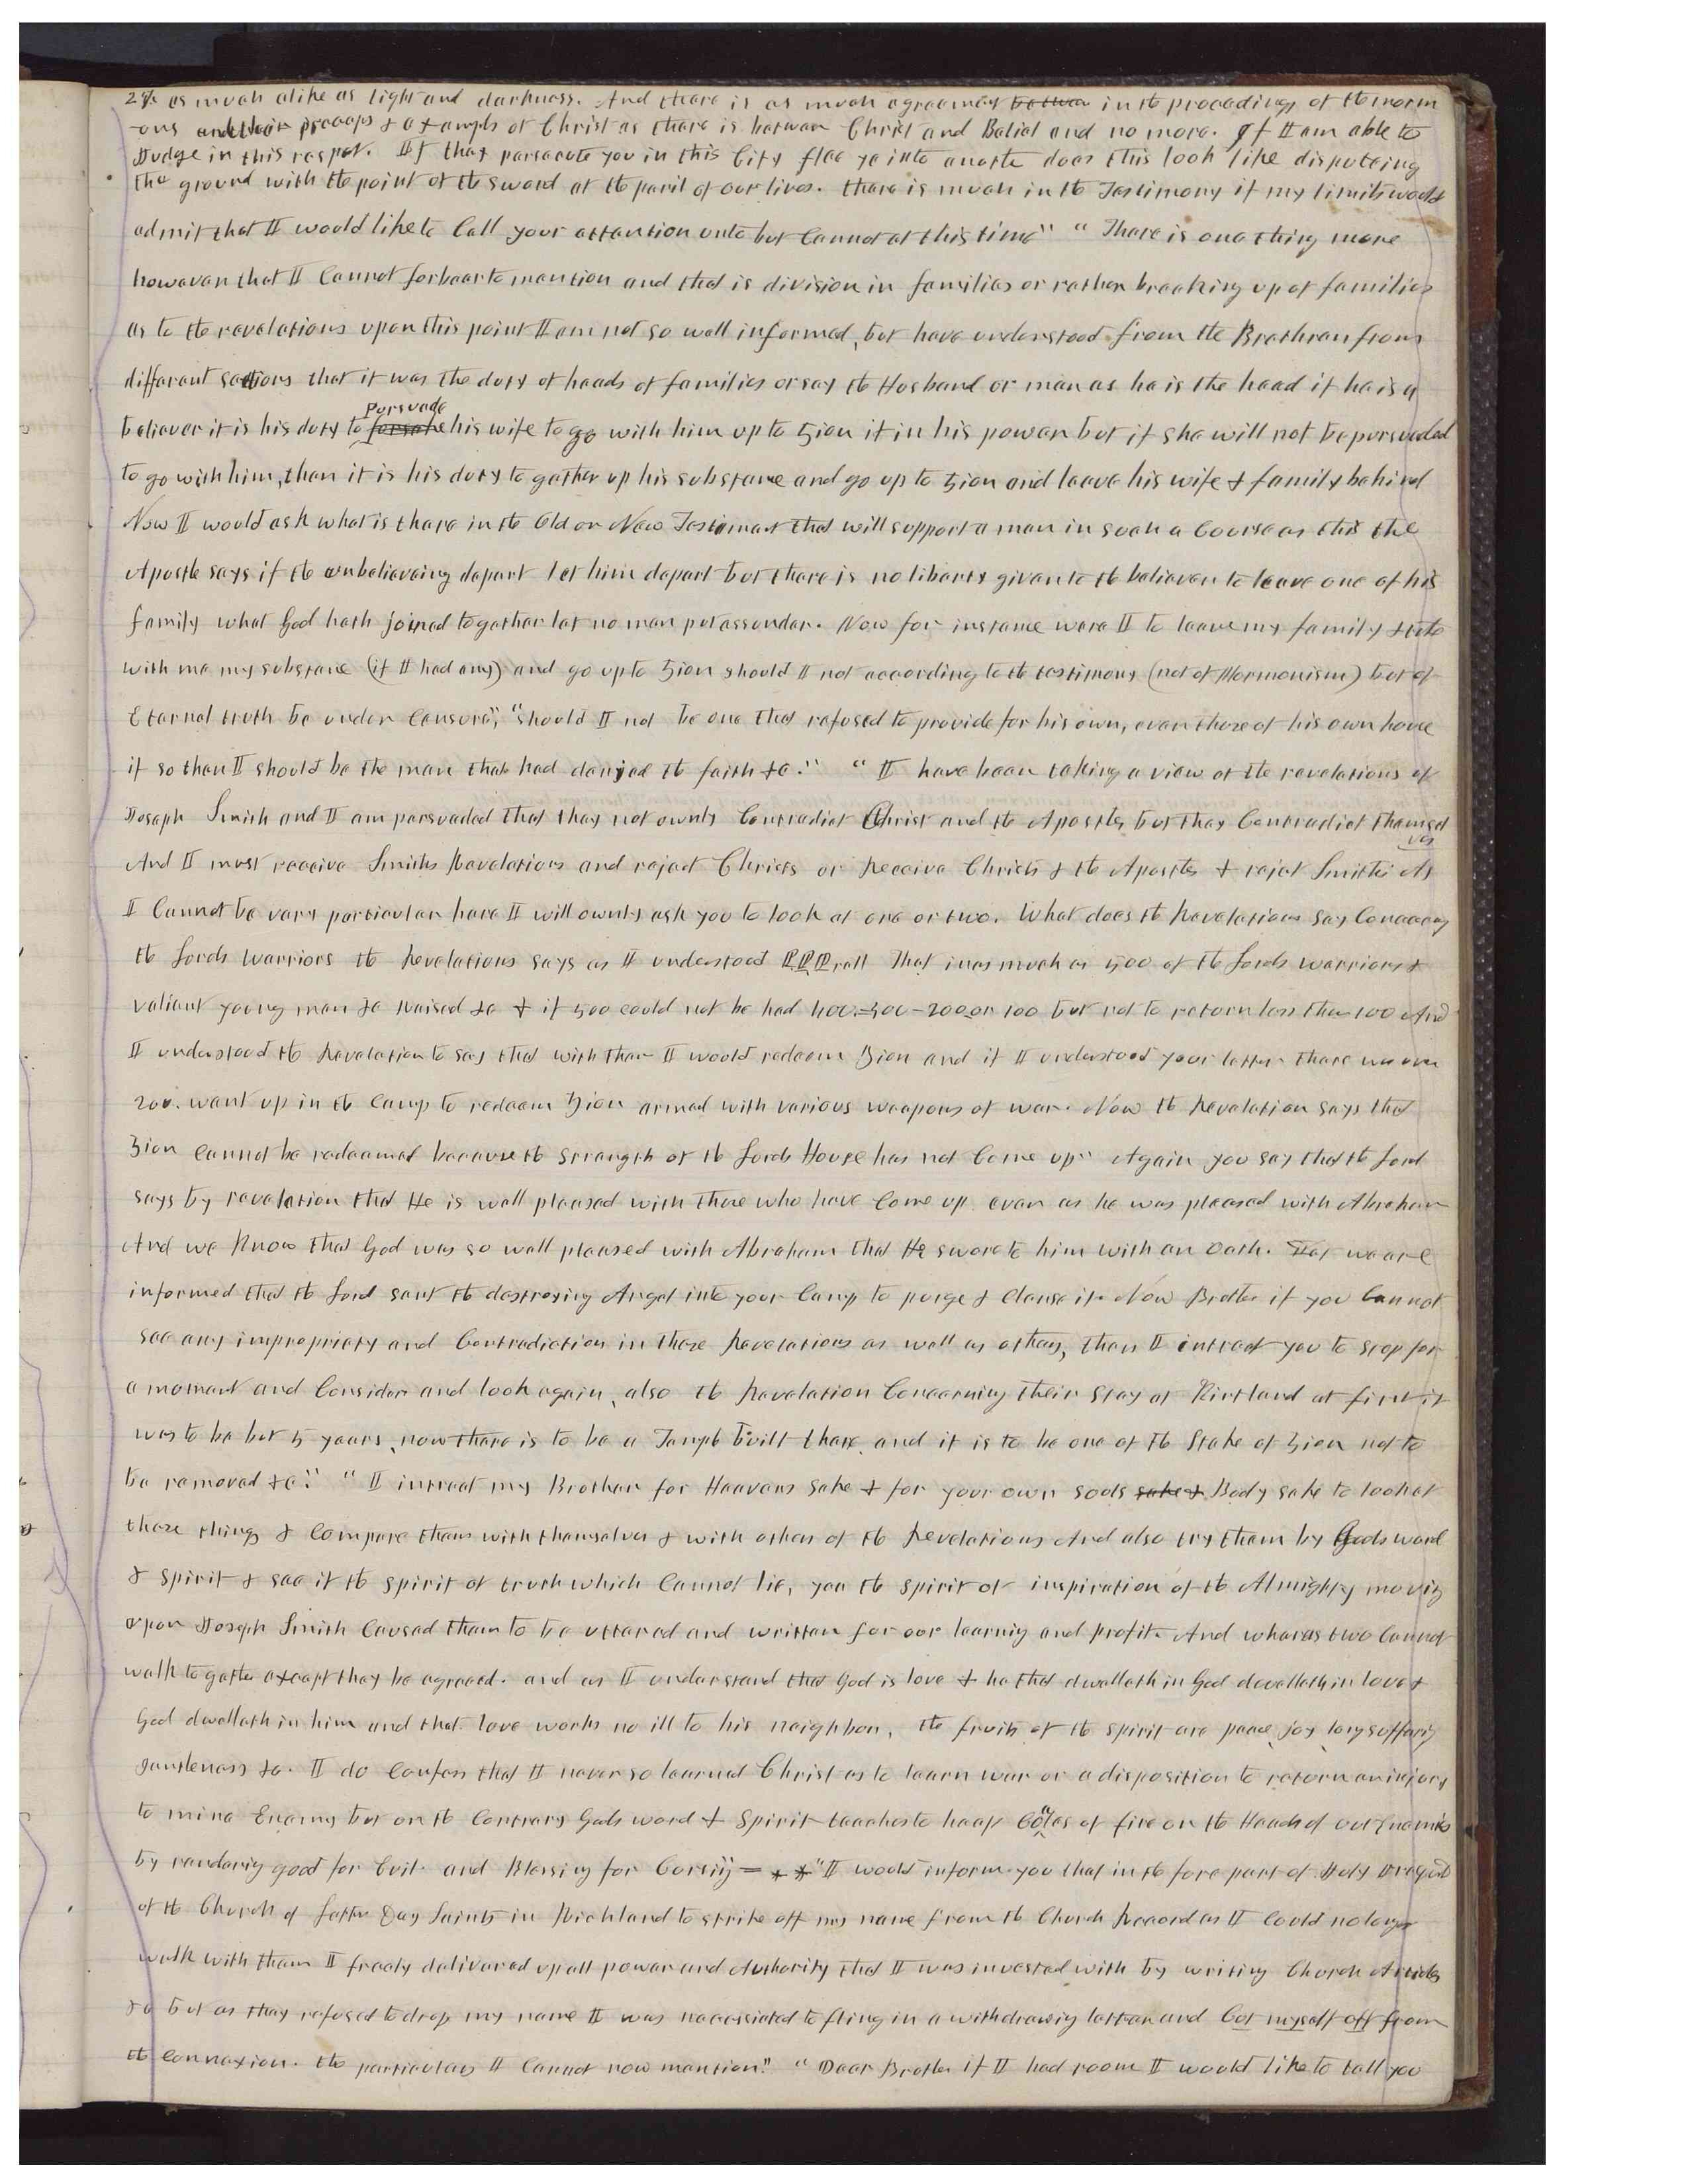 as much alike as light and darkness. And there is as much agreement betwen in the proceedings of the morm
ons and their preceps & examples of Christ as there is betwen Christ and Belial and no more. If I am able to
Judge in this respet. If they persecute you in this City flee ye into anothe does this look like disputeing
the ground with the point of the sword at the peril of our lives. there is much in the Testimony if my limits would
admit that I would like to Call your attention unto but Cannot at this time" " There is one thing more
howeven that I Cannot forbear to mention and that is division in families or rathen breaking up of families
as to the revelations upon this point I am not so well informed, but have understood from the Brethren from
different sections that it was the duty of heads of families or say the Husband or man as he is the head if he is a
believer it is his duty to forsake Persuade his wife to go with him up to Zion if in his power but if she will not be persuaded
to go with him, then it is his duty to gather up his substance and go up to Zion and leave his wife & family behind
Now I would ask what is there in the Old or New Testiment that will support a man in such a Course as this the
Apostle says if the unbelieveing depart let him depart but there is no liberty given to the believer to leave one of his
family what God hath joined together let no man put assunder. Now for instance were I to leave my family & take
with me my substance (if I had any) and go up to Zion should I not according to the testimony (not of Mormonism) but of
Eternal truth be under Censure", "should I not be one that refused to provide for his own, even those of his own house
if so then I should be the man that had denyed the faith &c." " I have been takeing a view of the revelations of
Joseph Smith and I am persuaded that they not ownly Contradict Christ and the Apostles but they Contradict themsel
ves
And I must receive Smiths Revelations and reject Christs or Receive Christs & the Apostles & rejet Smiths As
I Cannot be very particular here I will ownly ask you to look at one or two. What does the Revelations say Concerng
the Lords Warriors the Revelations says as I understood that inasmuch as 500 of the Lords warriors &
valiant young men &c Raised &c & if 500 could not be had 400.-300-200 or 100 but not to return less then 100 And
I understood the Revelation to say that with them I would redeem Zion and if I understood your letter there was over
200. went up in the Camp to redeem Zion armed with various weapons of war. Now the Revelation says that
Zion Cannot be redeemed because the Strength of the Lords House has not Come up" Again you say that the Lord
says by revelation that He is well pleased with those who have Come up even as he was pleased with Abraham
And we Know that God was so well pleased with Abraham that He swore to him with an Oath. Yet we are
informed that the Lord sent the destroying Angel into your Camp to purge & Clense it. Now Brother if you Cannot
see any impropriety and Contradiction in these Revelations as well as others, then I intreat you to stop for
a moment and Consider and look again, also the Revelation Concerning their Stay at Kirtland at first it
was to be but 5 years, now there is to be a Temple built there and it is to be one of the Stake of Zion not to
be removed &c." " I intreat my Brother for Heavens sake & for your own souls sake & Body sake to look at
these things & Compare them with themselves & with others of the Revelations And also try them by Gods word
& spirit & see if the spirit of truth which Cannot lie, yea the spirit of inspiration of the Almighty moving
upon Joseph Smith Caused them to be uttered and written for our learnig and profit. And wheras two Cannot
walk together except they be agreeed. and as I understand that God is love & he that dwelleth in God dewelleth in love &
God dwelleth in him and that love works no ill to his neighbor, the fruits of the spirit are peace, joy, long suffering
gentleness &c. I do Confess that I never so learned Christ as to learn war or a disposition to return an injury
to mine Enemy but on the Contrary Gods word & Spirit teaches to heap Coales of fire on the Heads of our Enemies
by renderig good for Evil and Blessing for Cursiÿ = * * "I would inform you that in the fore part of July I reqested
of the Church of Latter Day Saints in Richland to strike off my name from the Church Record as I Could no longer
walk with them I freely delivered up all power and Authority that I was invested with by writing Church Articles
&c but as they refused to drop my name I was necessiated to fling in a withdrawig letter and Cut myself off from
the Connexion. the particulars I Cannot now mention." "Dear Brother if I had room I would like to tell you